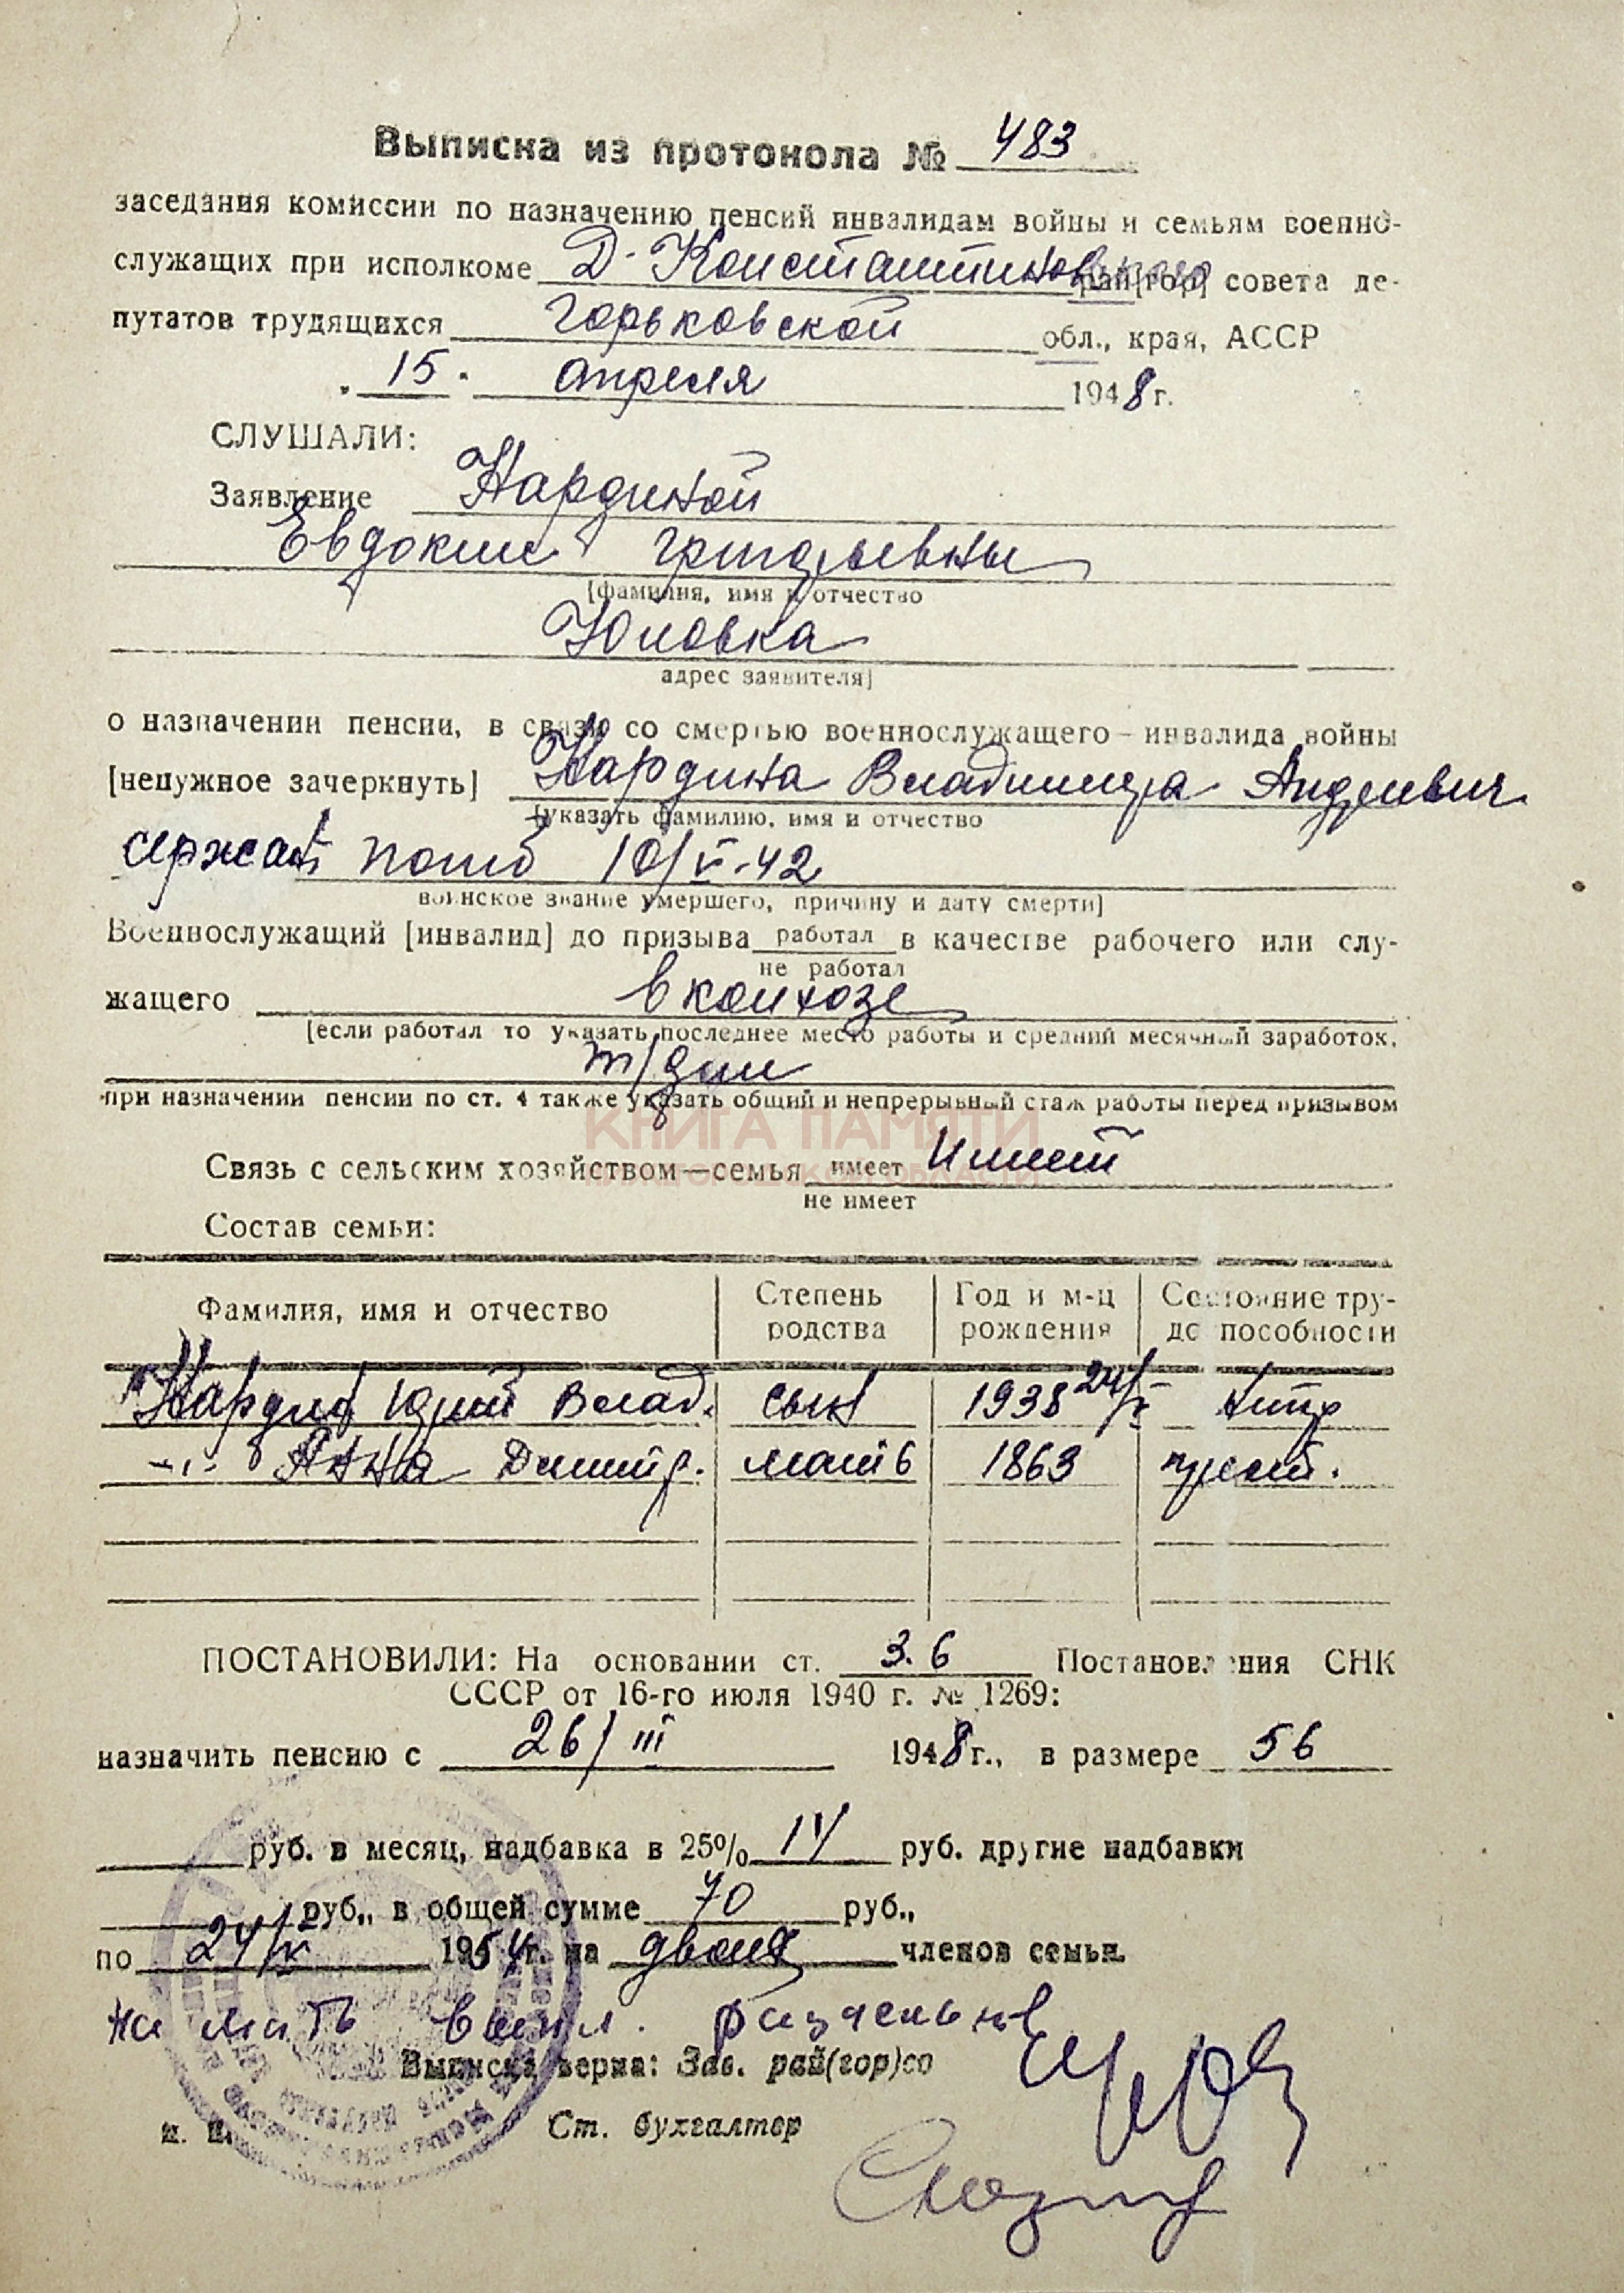 Выписка из протокола № 483
заседания комиссии по назначению пенсий инвалидам войны и семьям военно-
служащих при исполкоме Д-Константиновского рай[гор] совета де-
путатов трудящихся Горьковской обл., края, АССР
„ 15 " апреля 1948 г.
СЛУШАЛИ:
Заявление Нардиной
Евдокии Григорьевны
[фамилия, имя и отчество
Юловка
адрес заявителя]
о назначении пенсии, в связи со смертью военнослужащего – инвалида войны
[ненужное зачеркнуть] Нардина Владимира Андреевич
[указать фамилию, имя и отчество
сержант погиб 10/V-42
воинское звание умершего, причину и дату смерти]
Военнослужащий [инвалид] до призыва работал в качестве рабочего или слу-
не работал
жащего в колхозе
[если работал то указать последнее место работы и средний месячный заработок,
т/дни
при назначении пенсии по ст. 4 также указать общий и непрерывный стаж работы перед призывом
КНИГА ПАМЯТИ
НИЖЕГОРОДСКОЙ ОБЛАСТИ
Связь с сельским хозяйством—семья имеет Имеет
не имеет
Состав семьи:
Фамилия, имя и отчество Степень родства Год и м-ц рождения Состояние трудоспособности
Нардин Юрий Влад. сын 1938 24/V нитр
-"- Анна Димитр. мать 1863 прест.
ПОСТАНОВИЛИ: На основании ст. 3.6 Постановления СНК
СССР от 16-го июля 1940 г. № 1269:
назначить пенсию с 26/III 1948 г., в размере 56
руб. в месяц, надбавка в 25% 14 руб. другие надбавки
руб., в общей сумме 70 руб.,
по 24/V 1954 г. на двоих членов семьи.
На мать выпл. раздельно
Выписка верна: Зав. рай(гор)со
Ст. бухгалтер